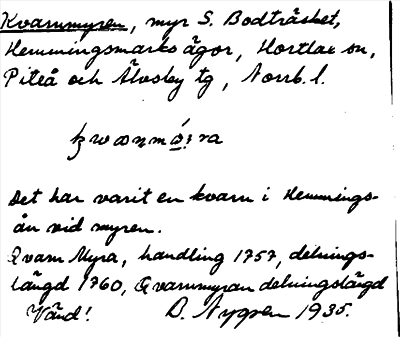 Kvarnmyren, myr S. Bodträsket,
Hemmingsmarks ägor, Hortlax sn,
Piteå och Älvsby tg, Norrb. l.
Det har varit en kvarn i Hemmings-
ån vid myren.
Qvarn Myra, handling 1757, delnings-
längd 1760, Qvarnmyran delningslängd
Vänd! D. Nygren 1935.